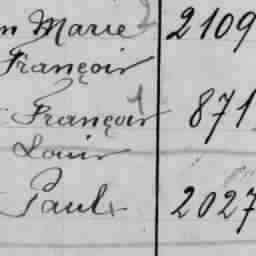 n Marie 2 2109
François
François 1 871
Louis
Paul 2027